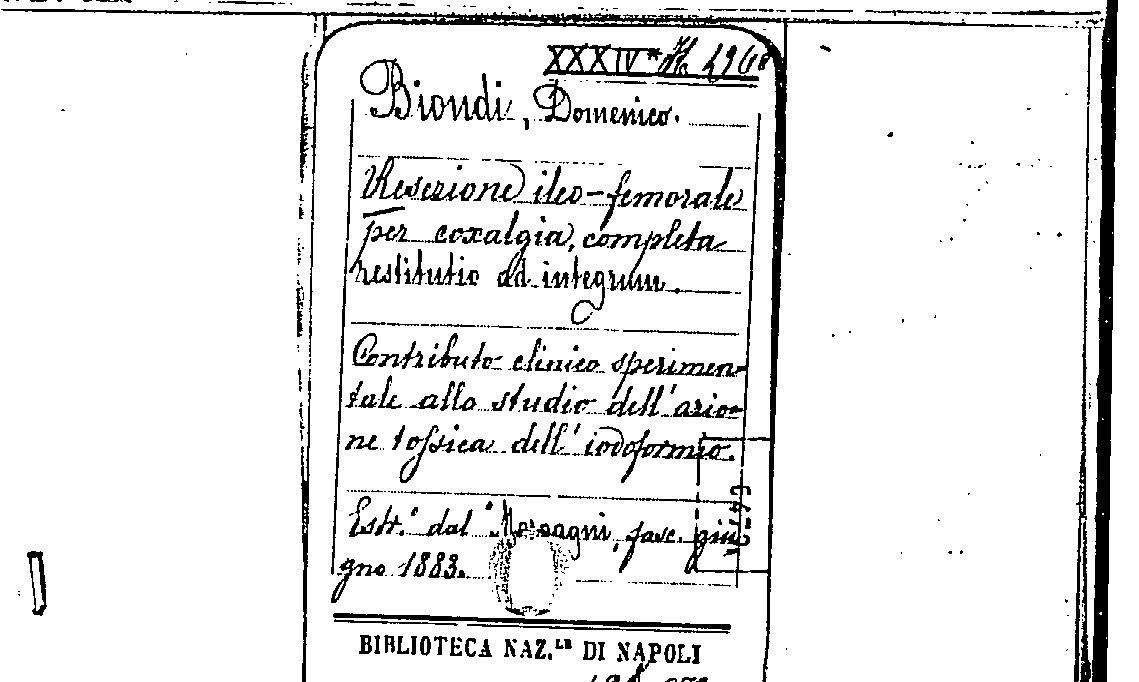 XXXIV*
Biondi, Domenico.
Resezione ileo-femorale
per coxalgia, completa
restitutio ad integrum.
Contributo clinico sperimen-
tale allo studio dell'azio-
ne tossica dell'iodoformio.
Estr.° dal "Morgagni, fasc. giu-
gno 1883.
BIBLIOTECA NAZ.LE DI NAPOLI